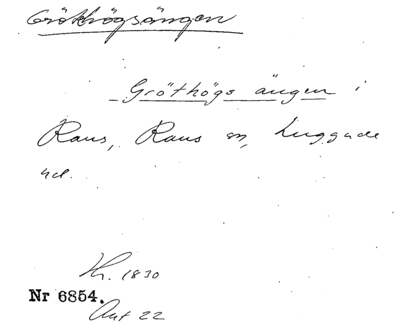 Gröthögsängen
Gröthögs ängen i
Raus, Raus sn, Luggude
hd.
Hr. 1830
Nr 6854.
Ant 22